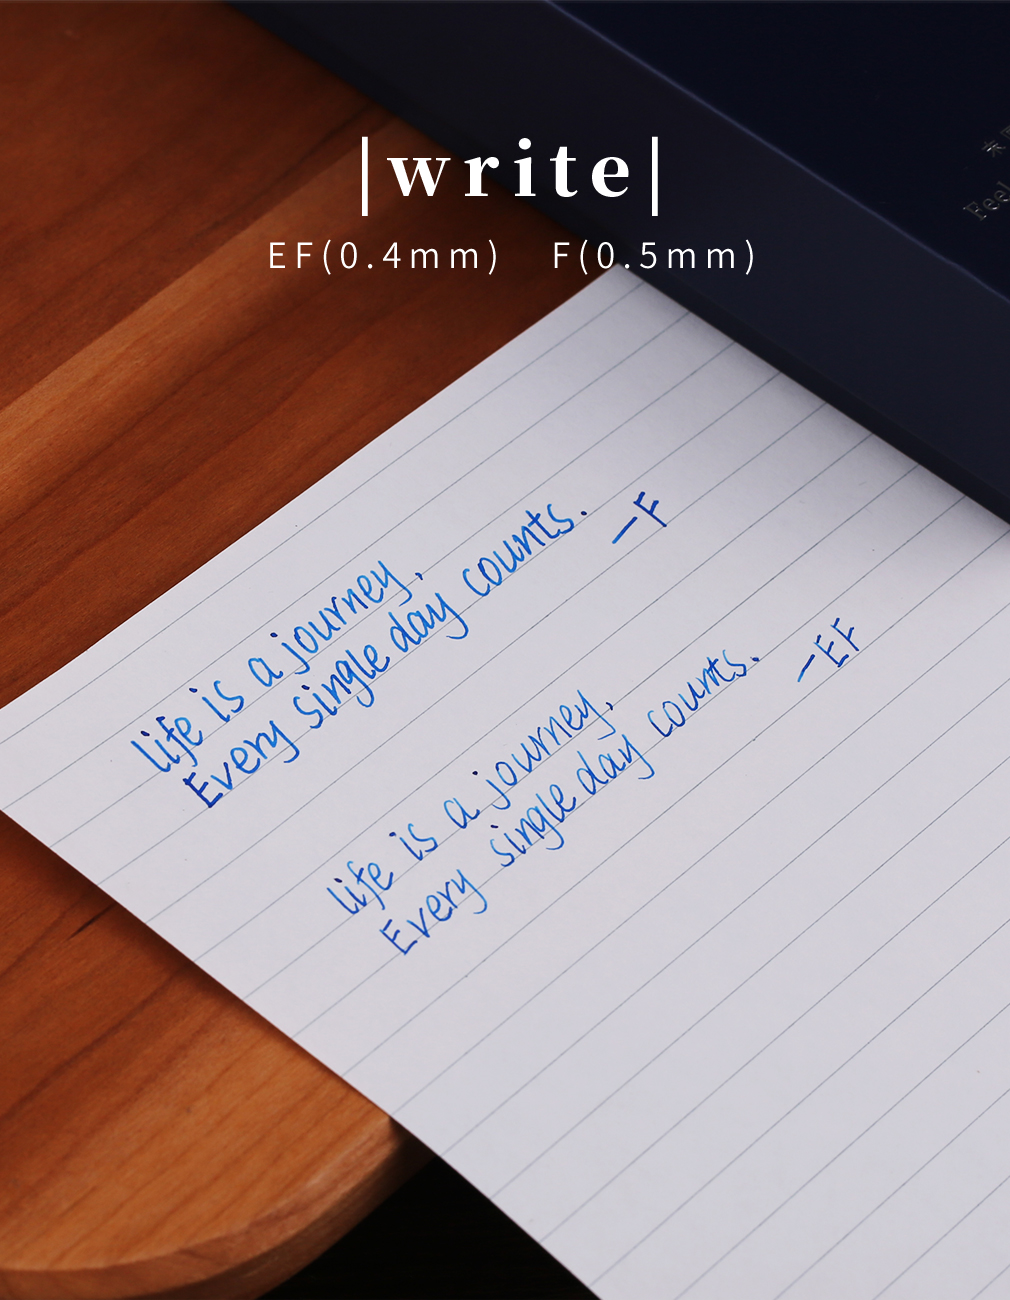 |write|
EF(0.4mm) F(0.5mm)
Feel
life is a journey,
Every single day counts.
—F
life is a journey,
Every single day counts.
—EF